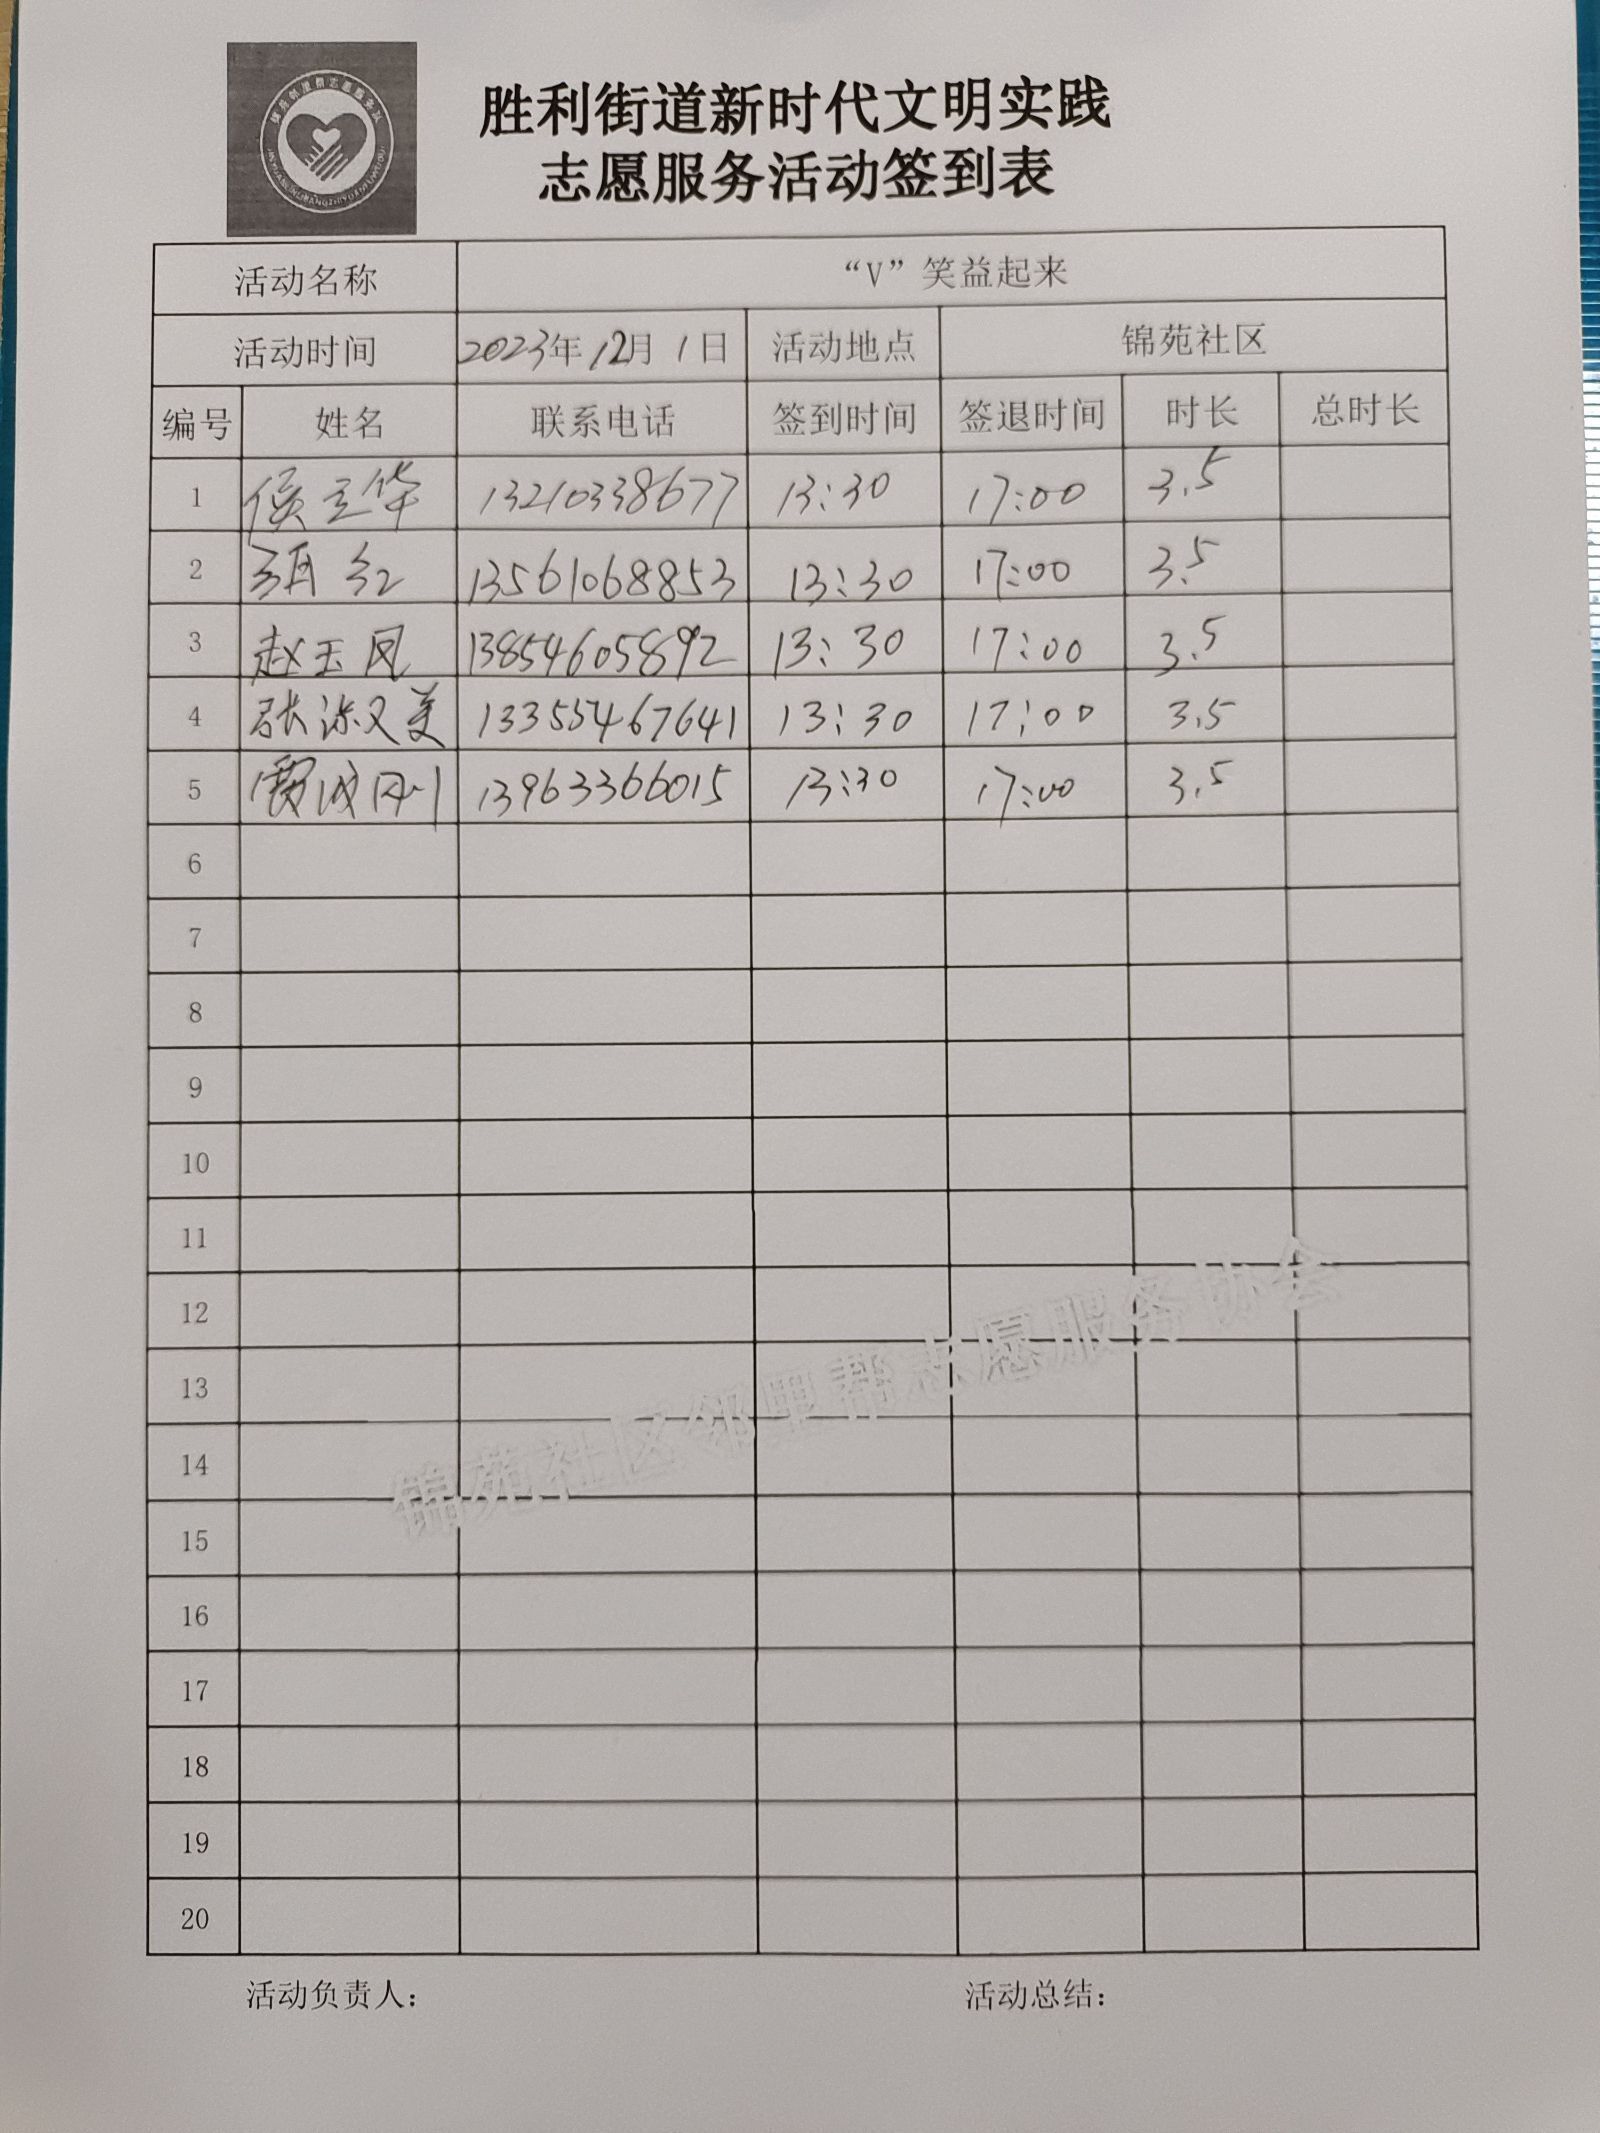 胜利街道新时代文明实践
志愿服务活动签到表
活动名称 “V”笑益起来
活动时间 2023年12月1日 活动地点 锦苑社区
编号 姓名 联系电话 签到时间 签退时间 时长 总时长
1 侯立华 13210338677 13:30 17:00 3.5
2 红 13561068853 13:30 17:00 3.5
3 赵玉凤 13854605892 13:30 17:00 3.5
4 张淑美 13355467641 13:30 17:00 3.5
5 13963366015 13:30 17:00 3.5
6
7
8
9
10
11
12
13
14
15
16
17
18
19
20
锦苑社区邻里帮志愿服务协会
活动负责人： 活动总结：